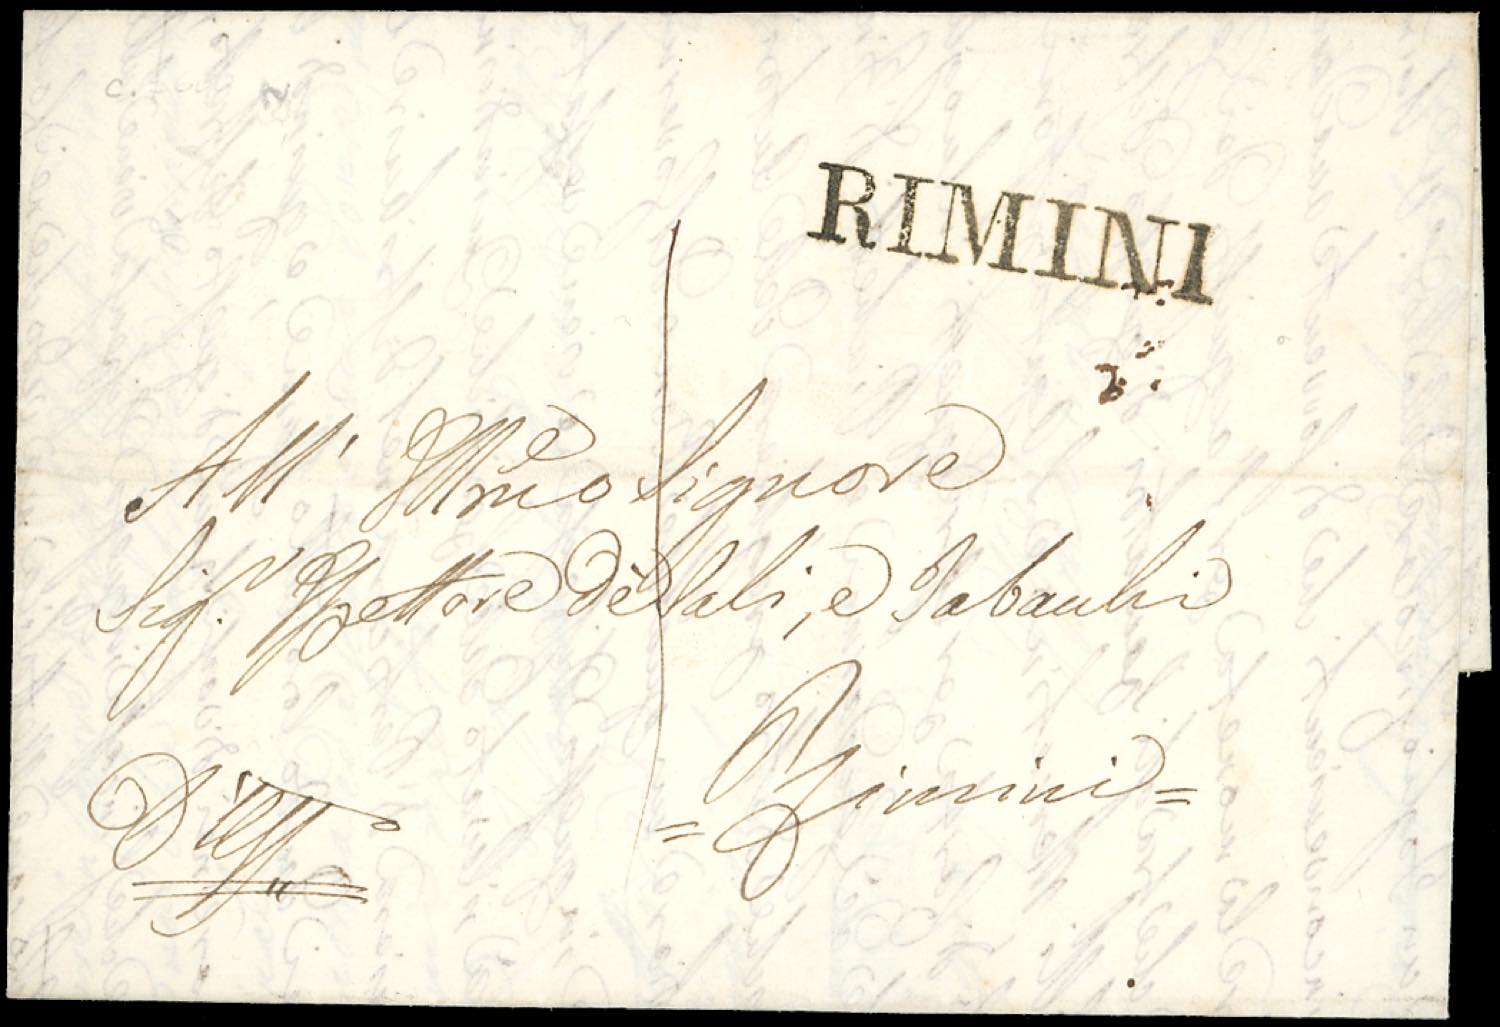 RIMINI
All' Illmo Signore
Sigr Ispettore dè Sali, e Tabachi
= Rimini =
D'Uff